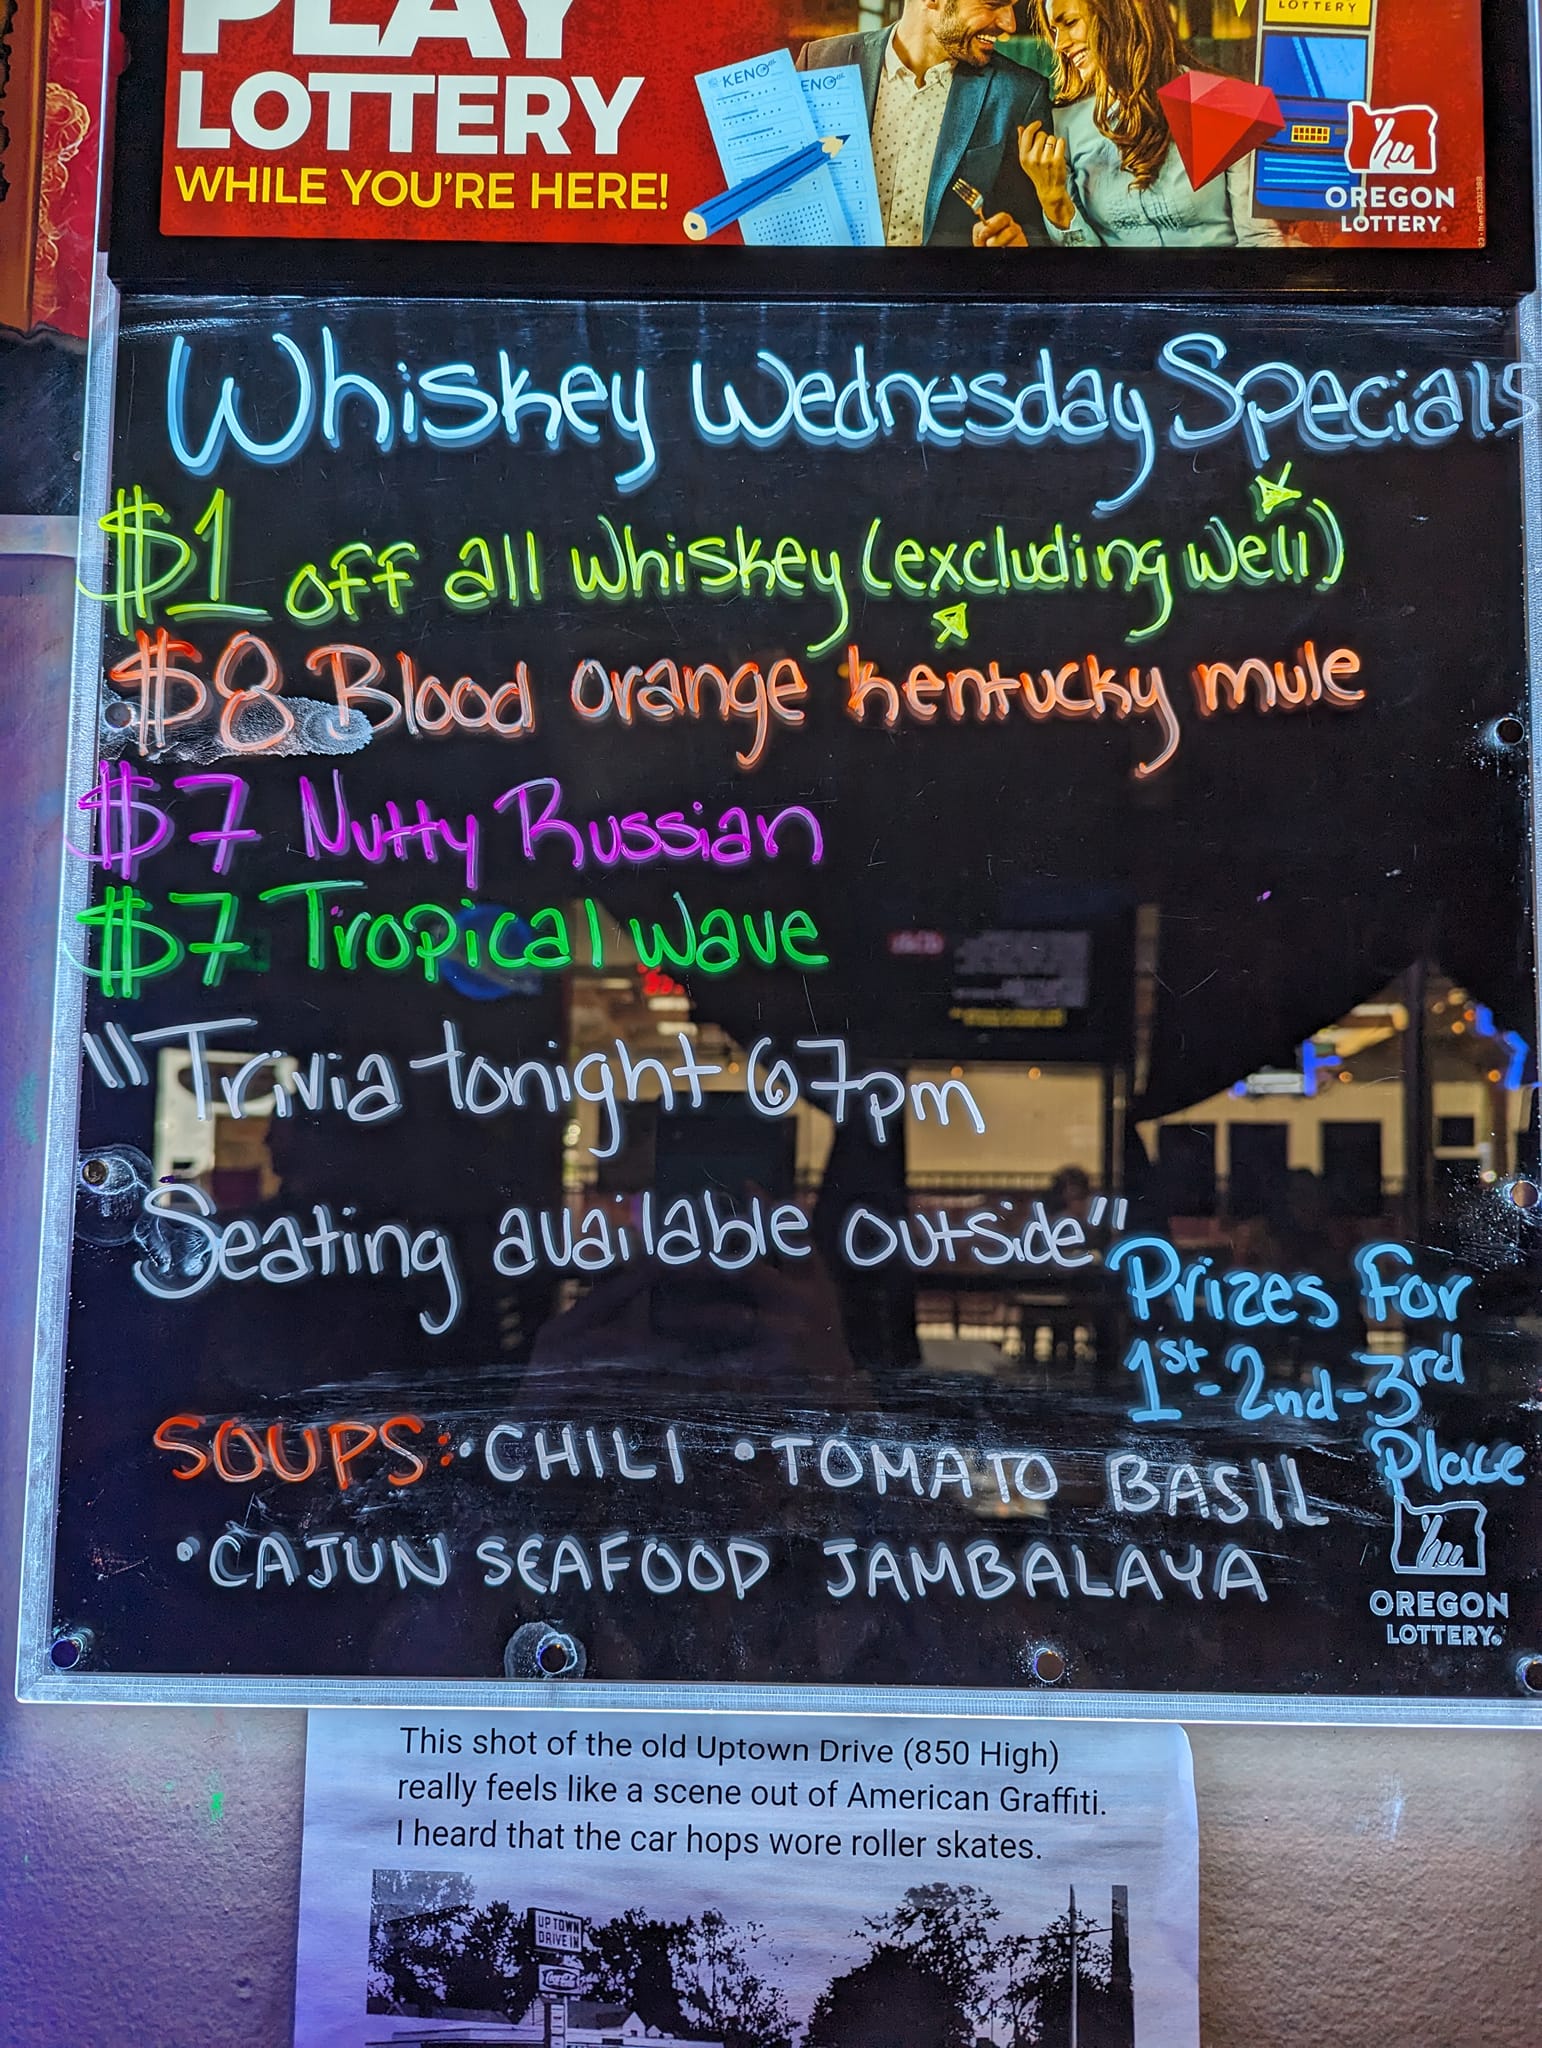 PLAY
LOTTERY
WHILE YOU'RE HERE!
KENO
KENO
LOTTERY
OREGON
LOTTERY
Whiskey Wednesday Specials
$1 off all whiskey (excluding well)
$8 Blood orange kentucky mule
$7 Nutty Russian
$7 Tropical wave
"Trivia tonight @ 7pm
Seating available outside"
Prizes for
1st-2nd-3rd
Place
SOUPS: • CHILI • TOMATO BASIL
• CAJUN SEAFOOD JAMBALAYA
OREGON
LOTTERY
This shot of the old Uptown Drive (850 High)
really feels like a scene out of American Graffiti.
I heard that the car hops wore roller skates.
UPTOWN
DRIVE IN
Coca-Cola